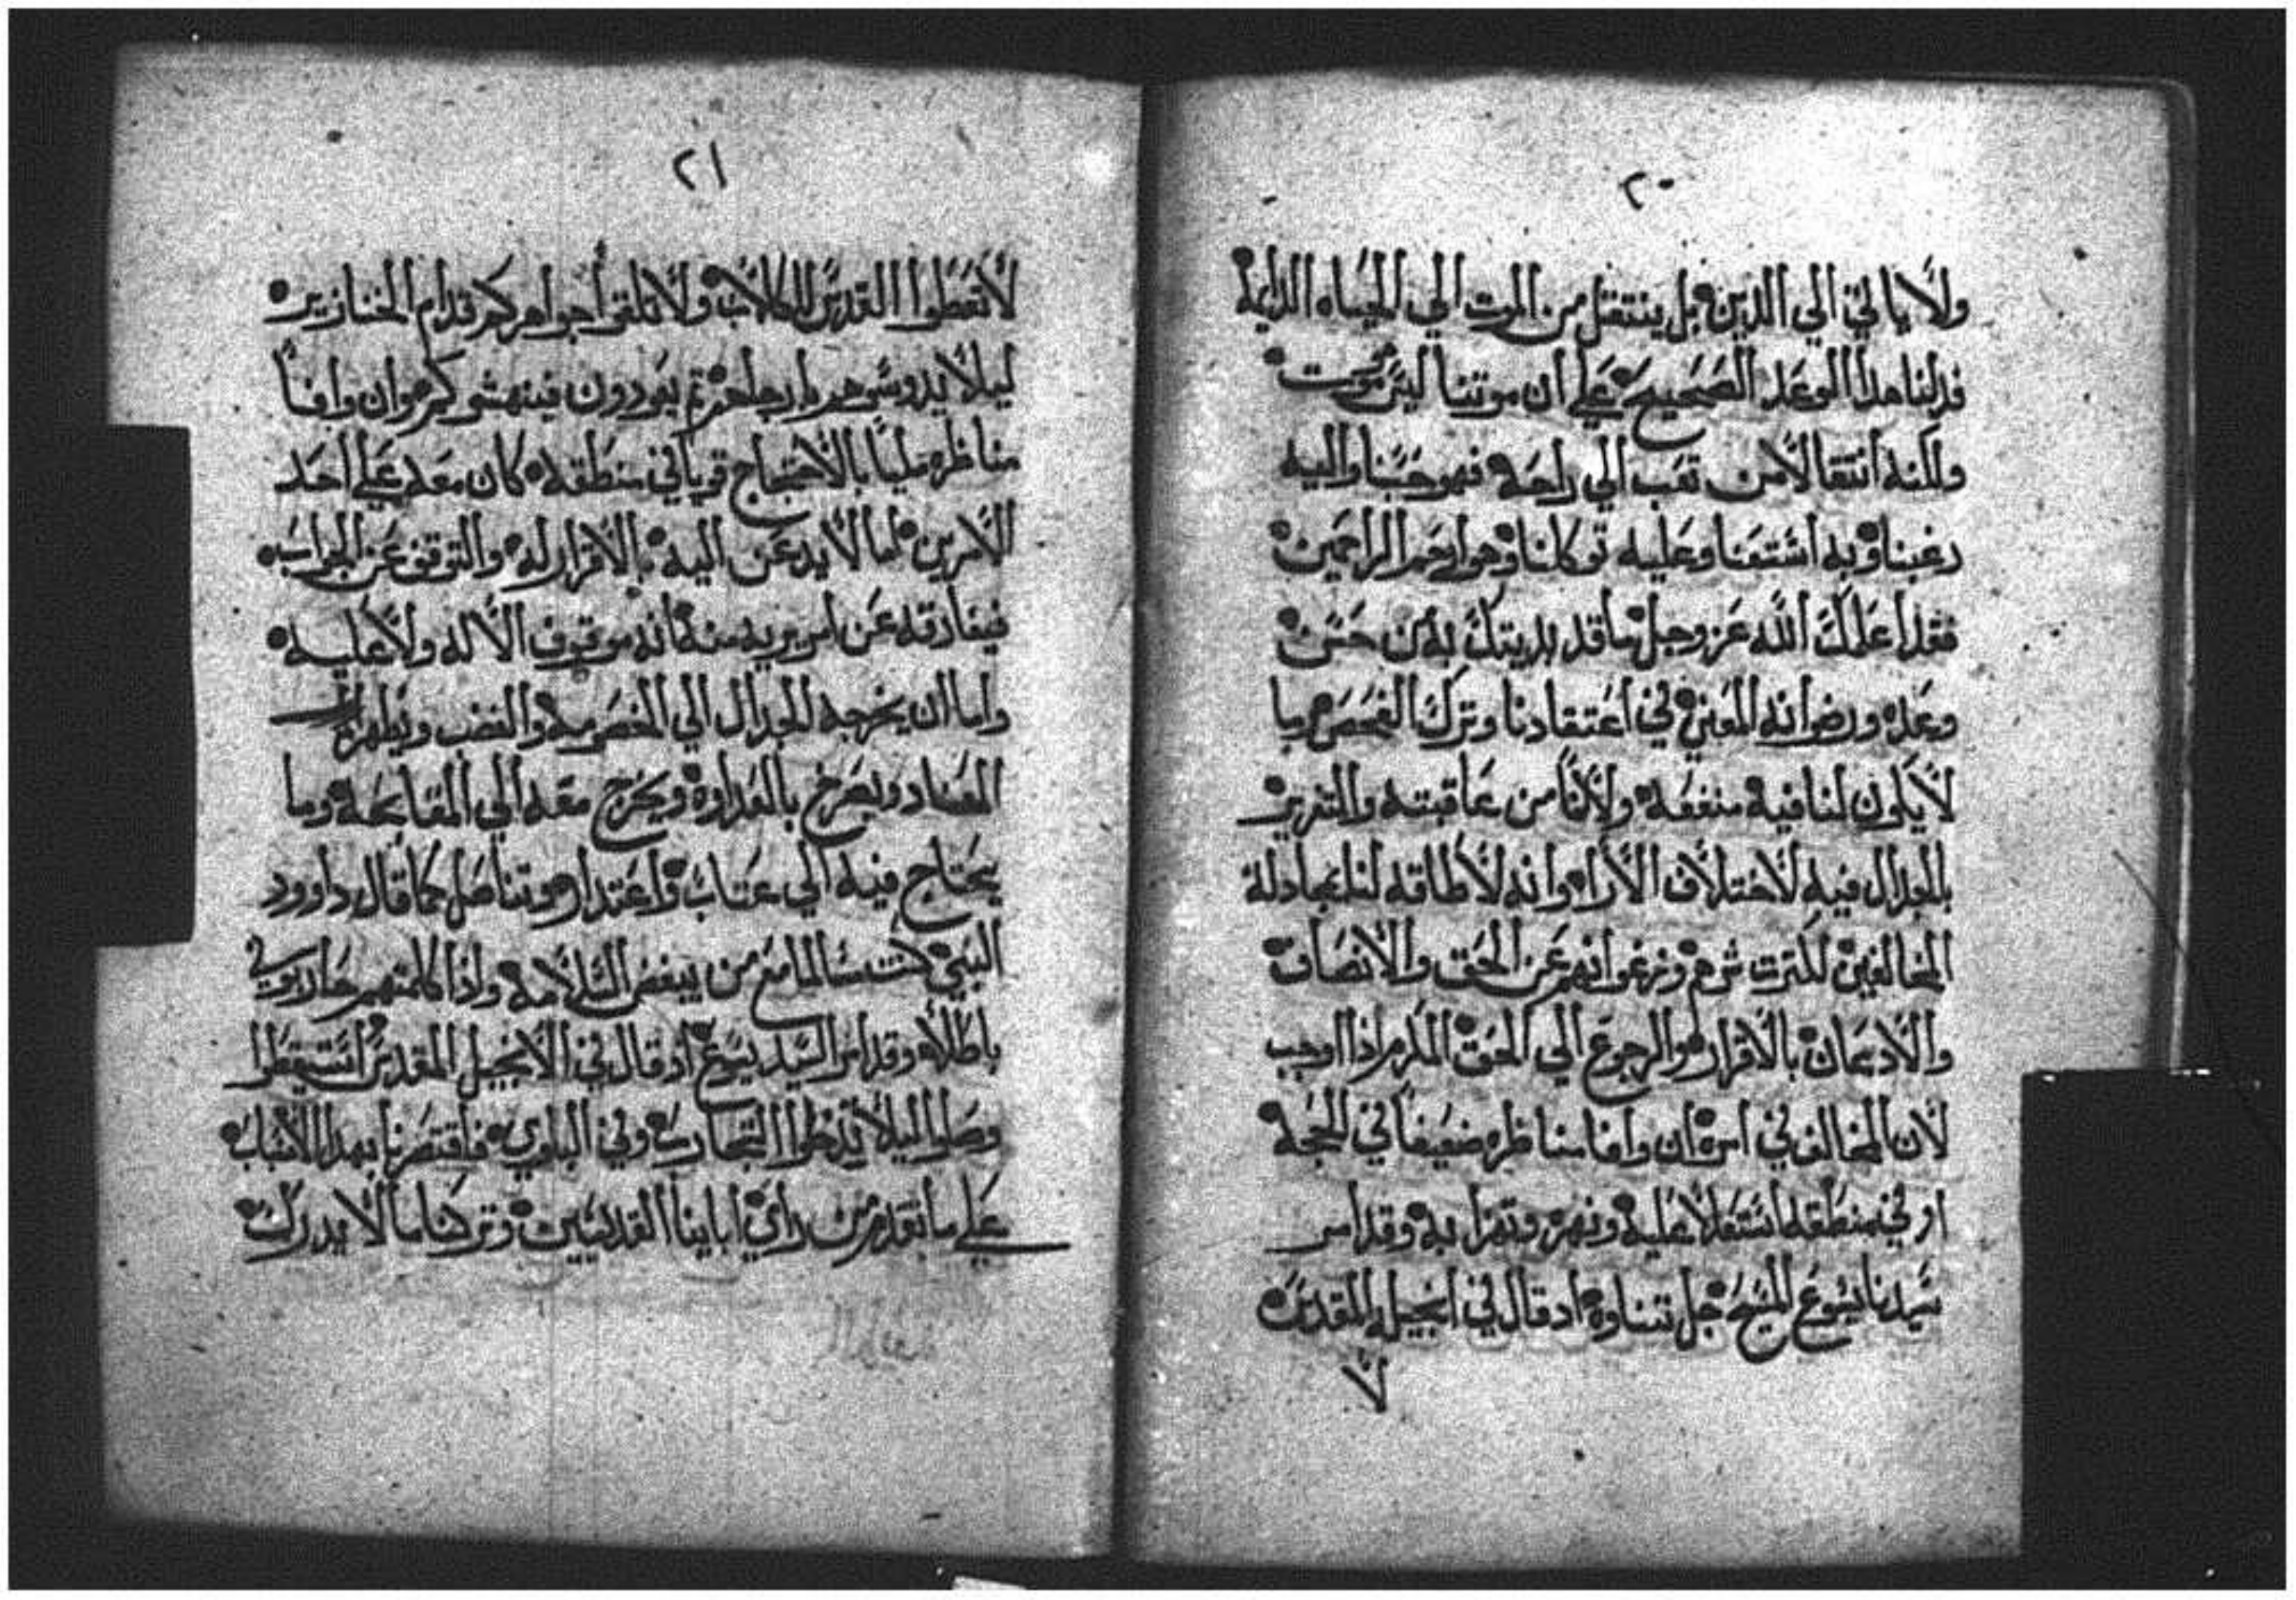 ٢٠
ولا ياتي الي الدين بل ينتقل من الموت الي الحياه الدايمه
فدلنا هدا الوعد الصحيح علي ان موتنا ليس موت
ولكنه انتقالا من تعب الي راحه فهو حسبنا واليه
رغبنا وبه استعنا وعليه توكلنا وهو ارحم الراحمين
فقد اعلمك الله عز وجل ما قد بديتك به من حسن
وعده ورضوانه المعني في اعتقادنا وترك الفحص بما
لا يكون لنا فيه منفعه ولا نامن عاقبته والتدين
بالجدال فيه لاختلاف الارا وانه لا طاقه لنا بمجادلة
المخالفين لكترت شرهم وزعوانهم عن الحق والانصاف
والادعان بالاقرار والرجوع الي الحق الملزم ادا اوجب
لان المخالف في امره ان وافا مناظره ضعيفا في الحجه
او في منطقه استعلا عليه ونهره وتهزا به وقد امر
سيدنا يسوع المسيح جل تناوه اد قال في انجيله المقدس
لا
٢١
لا تعطوا القدس للكلاب ولا تلقوا جواهركم قدام الخنازير
ليلا يدوسوهم بارجلهم تم يعودون فينهشوكم وان وافا
مناظره مليا بالاحتجاج قويا في منطقه كان معه علي احد
الامرين اما لا يدعن اليه بالاقرار له والتوقف عن الجواب
فيفارقه عن امر يريد منه كانه موقوف لا له ولا عليه
واما ان يخرجه الجدال الي الخصومه والغضب ويظهر له
العناد ويصرخ بالعداوه ويخرج معه الي المقابحه وما
يحتاج فيه الي عتاب واعتدار وتناصل كما قال داوود
النبي كنت مسالما مع من يبغض السلامه وادا كلمتهم حاربوني
باطلا وقد امر السيد يسوع اد قال في الانجيل المقدس استيقظوا
وصلوا ليلا تدخلوا التجارب وفي البلوي فاقتصرنا بهدا الاسباب
علي ما تقدم من راي اباينا القديسين وتركنا ما لا يدرك